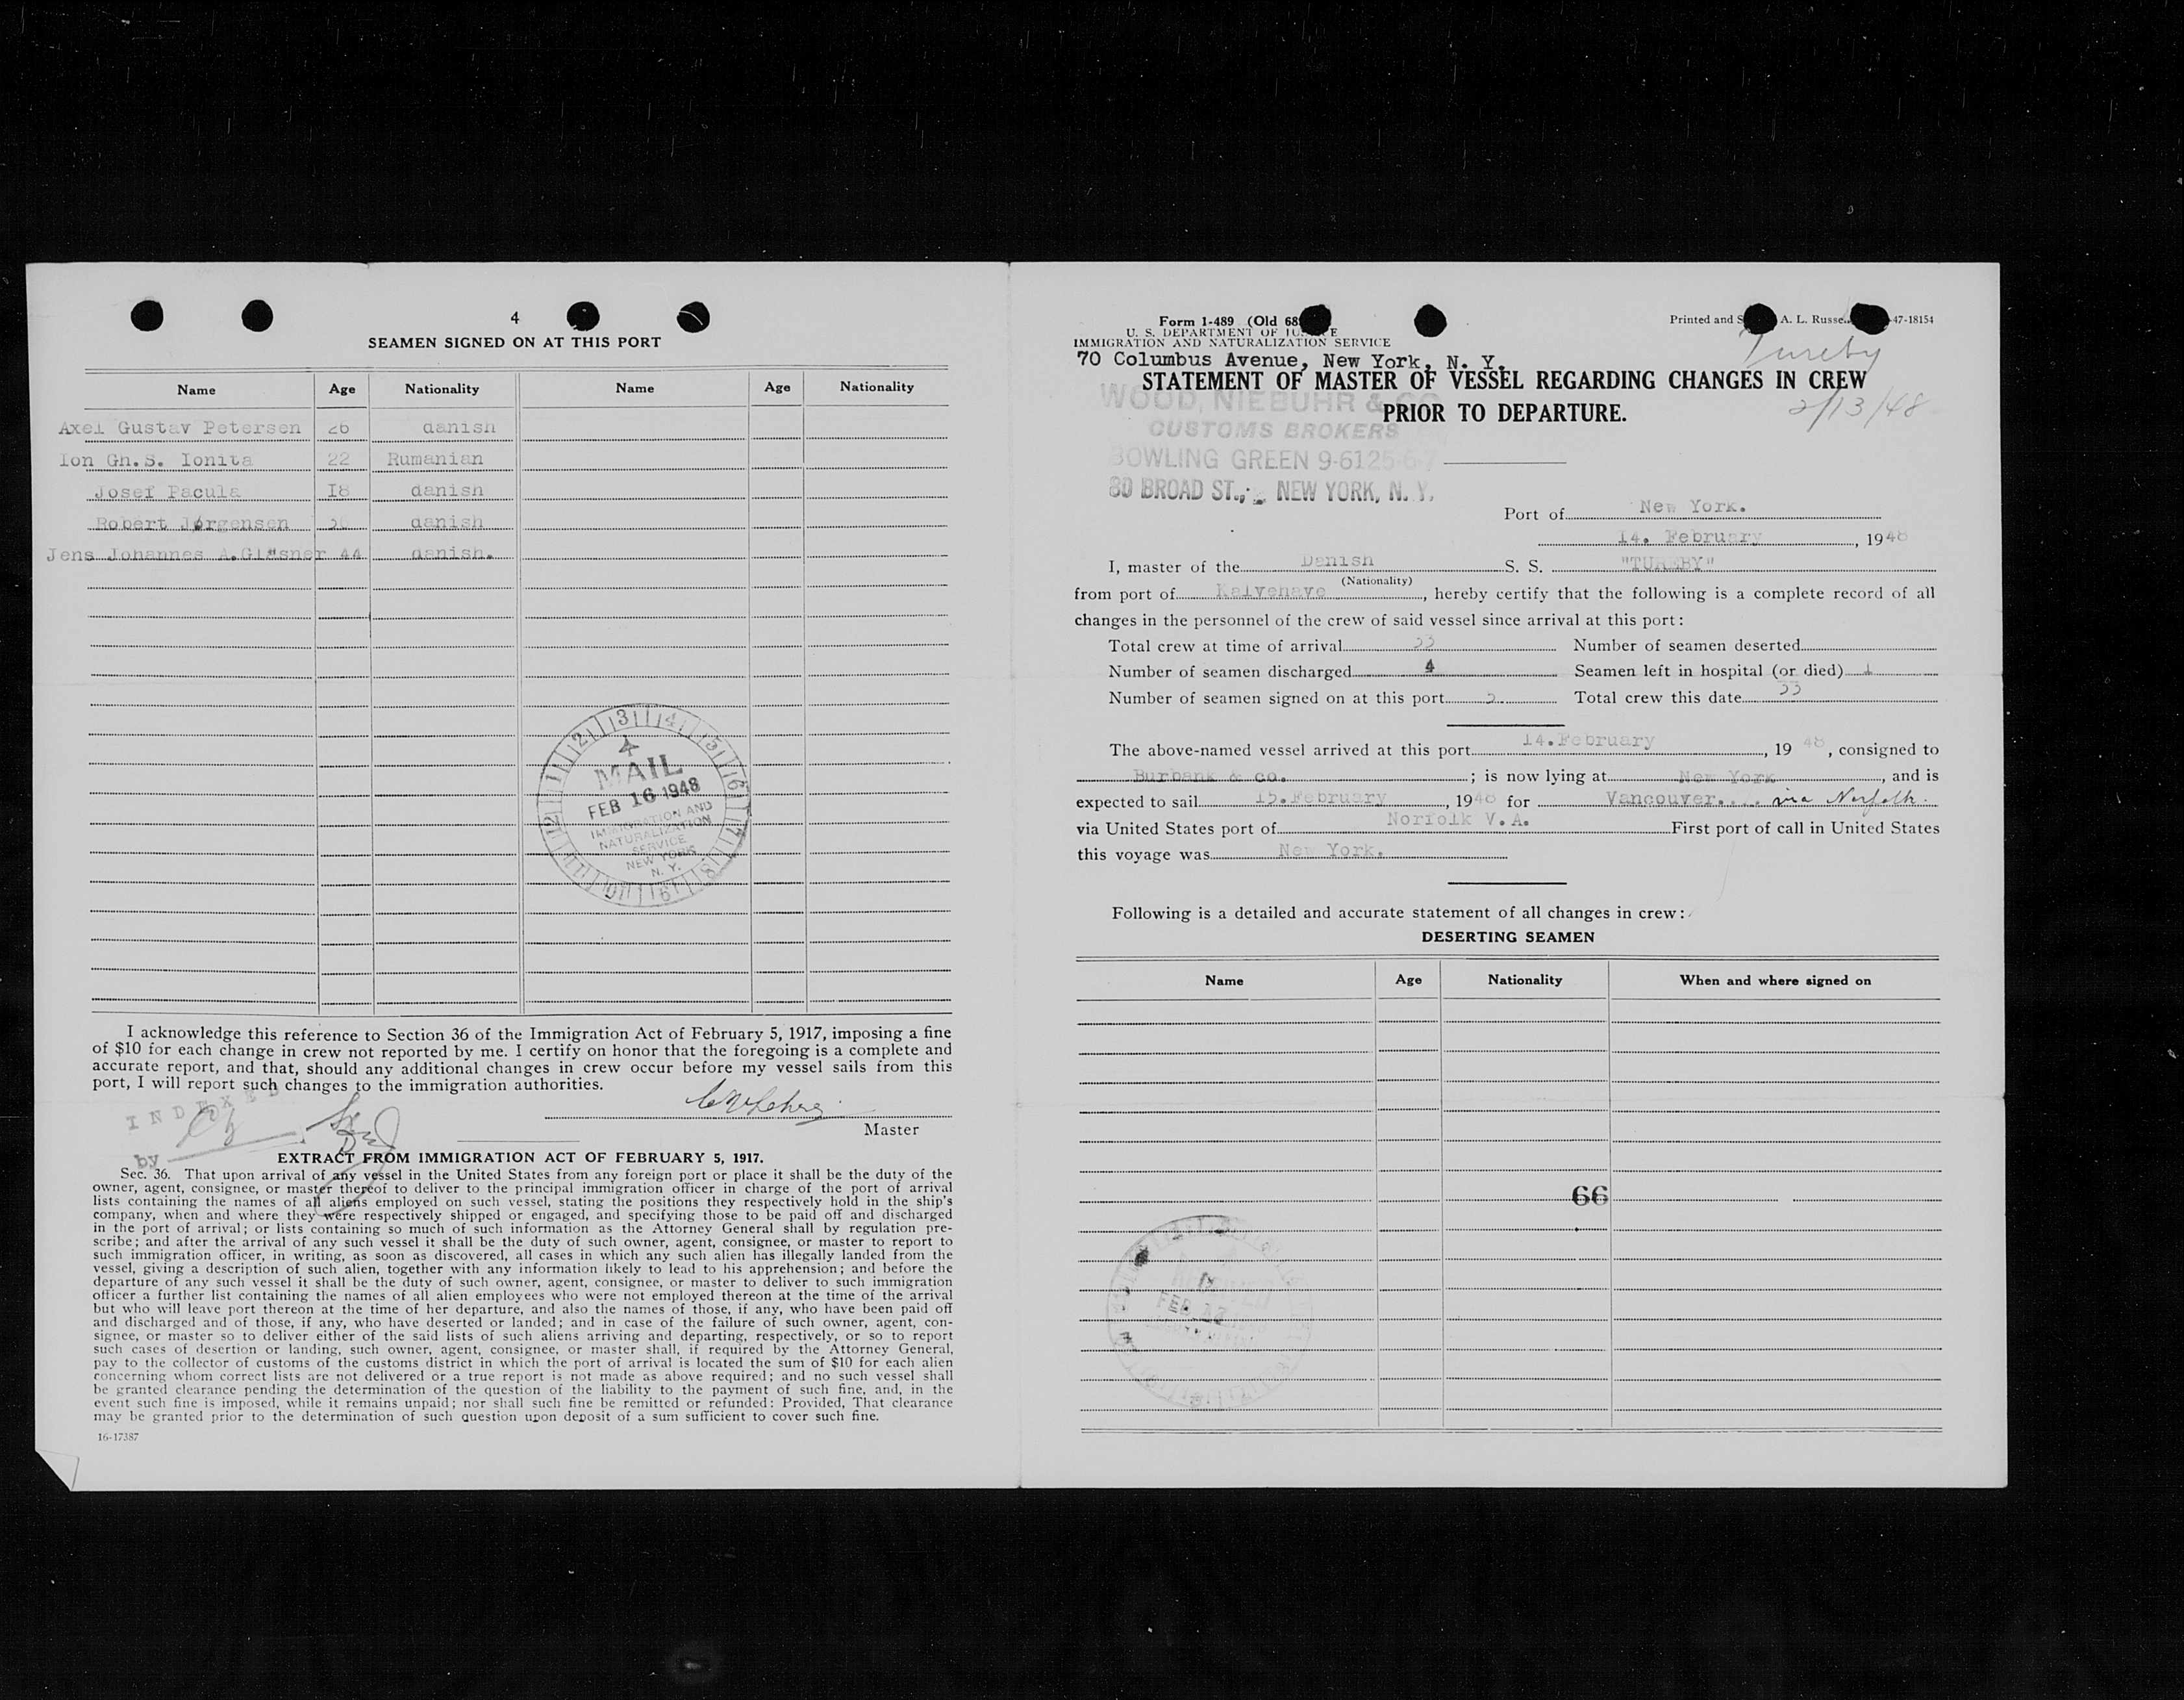 4
SEAMEN SIGNED ON AT THIS PORT
Name Age Nationality Name Age Nationality
Axel Gustav Petersen 26 danish
Ion Gh.S. Ionita 22 Rumanian
Josef Pacula I8 danish
Robert Jørgensen danish
Jens Johannes A. 44 danish.
MAIL
FEB 16 1948
IMMIGRATION AND
NATURALIZATION
SERVICE
NEW YORK
N. Y.
I acknowledge this reference to Section 36 of the Immigration Act of February 5, 1917, imposing a fine
of $10 for each change in crew not reported by me. I certify on honor that the foregoing is a complete and
accurate report, and that, should any additional changes in crew occur before my vessel sails from this
port, I will report such changes to the immigration authorities.
INDEXED
by
Master
EXTRACT FROM IMMIGRATION ACT OF FEBRUARY 5, 1917.
Sec. 36. That upon arrival of any vessel in the United States from any foreign port or place it shall be the duty of the
owner, agent, consignee, or master thereof to deliver to the principal immigration officer in charge of the port of arrival
lists containing the names of all aliens employed on such vessel, stating the positions they respectively hold in the ship's
company, when and where they were respectively shipped or engaged, and specifying those to be paid off and discharged
in the port of arrival; or lists containing so much of such information as the Attorney General shall by regulation pre-
scribe; and after the arrival of any such vessel it shall be the duty of such owner, agent, consignee, or master to report to
such immigration officer, in writing, as soon as discovered, all cases in which any such alien has illegally landed from the
vessel, giving a description of such alien, together with any information likely to lead to his apprehension; and before the
departure of any such vessel it shall be the duty of such owner, agent, consignee, or master to deliver to such immigration
officer a further list containing the names of all alien employees who were not employed thereon at the time of the arrival
but who will leave port thereon at the time of her departure, and also the names of those, if any, who have been paid off
and discharged and of those, if any, who have deserted or landed; and in case of the failure of such owner, agent, con-
signee, or master so to deliver either of the said lists of such aliens arriving and departing, respectively, or so to report
such cases of desertion or landing, such owner, agent, consignee, or master shall, if required by the Attorney General,
pay to the collector of customs of the customs district in which the port of arrival is located the sum of $10 for each alien
concerning whom correct lists are not delivered or a true report is not made as above required; and no such vessel shall
be granted clearance pending the determination of the question of the liability to the payment of such fine, and, in the
event such fine is imposed, while it remains unpaid; nor shall such fine be remitted or refunded; Provided, That clearance
may be granted prior to the determination of such question upon deposit of a sum sufficient to cover such fine.
16-17387
Form 1-489 (Old 68
U. S. DEPARTMENT OF JUSTICE
IMMIGRATION AND NATURALIZATION SERVICE
70 Columbus Avenue, New York, N. Y.
Printed and S A. L. Russe 47-18154
Tureby
2/13/48
STATEMENT OF MASTER OF VESSEL REGARDING CHANGES IN CREW
PRIOR TO DEPARTURE.
WOOD, NIEBUHR & CO
CUSTOMS BROKERS
BOWLING GREEN 9-6125-6-7
80 BROAD ST., NEW YORK, N. Y.
Port of New York.
14. February, 1948
I, master of the Danish S. S. "TUREBY"
(Nationality)
from port of Kalvehave, hereby certify that the following is a complete record of all
changes in the personnel of the crew of said vessel since arrival at this port:
Total crew at time of arrival 33 Number of seamen deserted
Number of seamen discharged 4 Seamen left in hospital (or died) 1
Number of seamen signed on at this port 5 Total crew this date 33
The above-named vessel arrived at this port 14.February, 19 48, consigned to
Burbank & co.; is now lying at New York, and is
expected to sail 15.February, 1948 for Vancouver. via Norfolk.
via United States port of Norfolk V.A. First port of call in United States
this voyage was New York.
Following is a detailed and accurate statement of all changes in crew:
DESERTING SEAMEN
Name Age Nationality When and where signed on
66
FEB